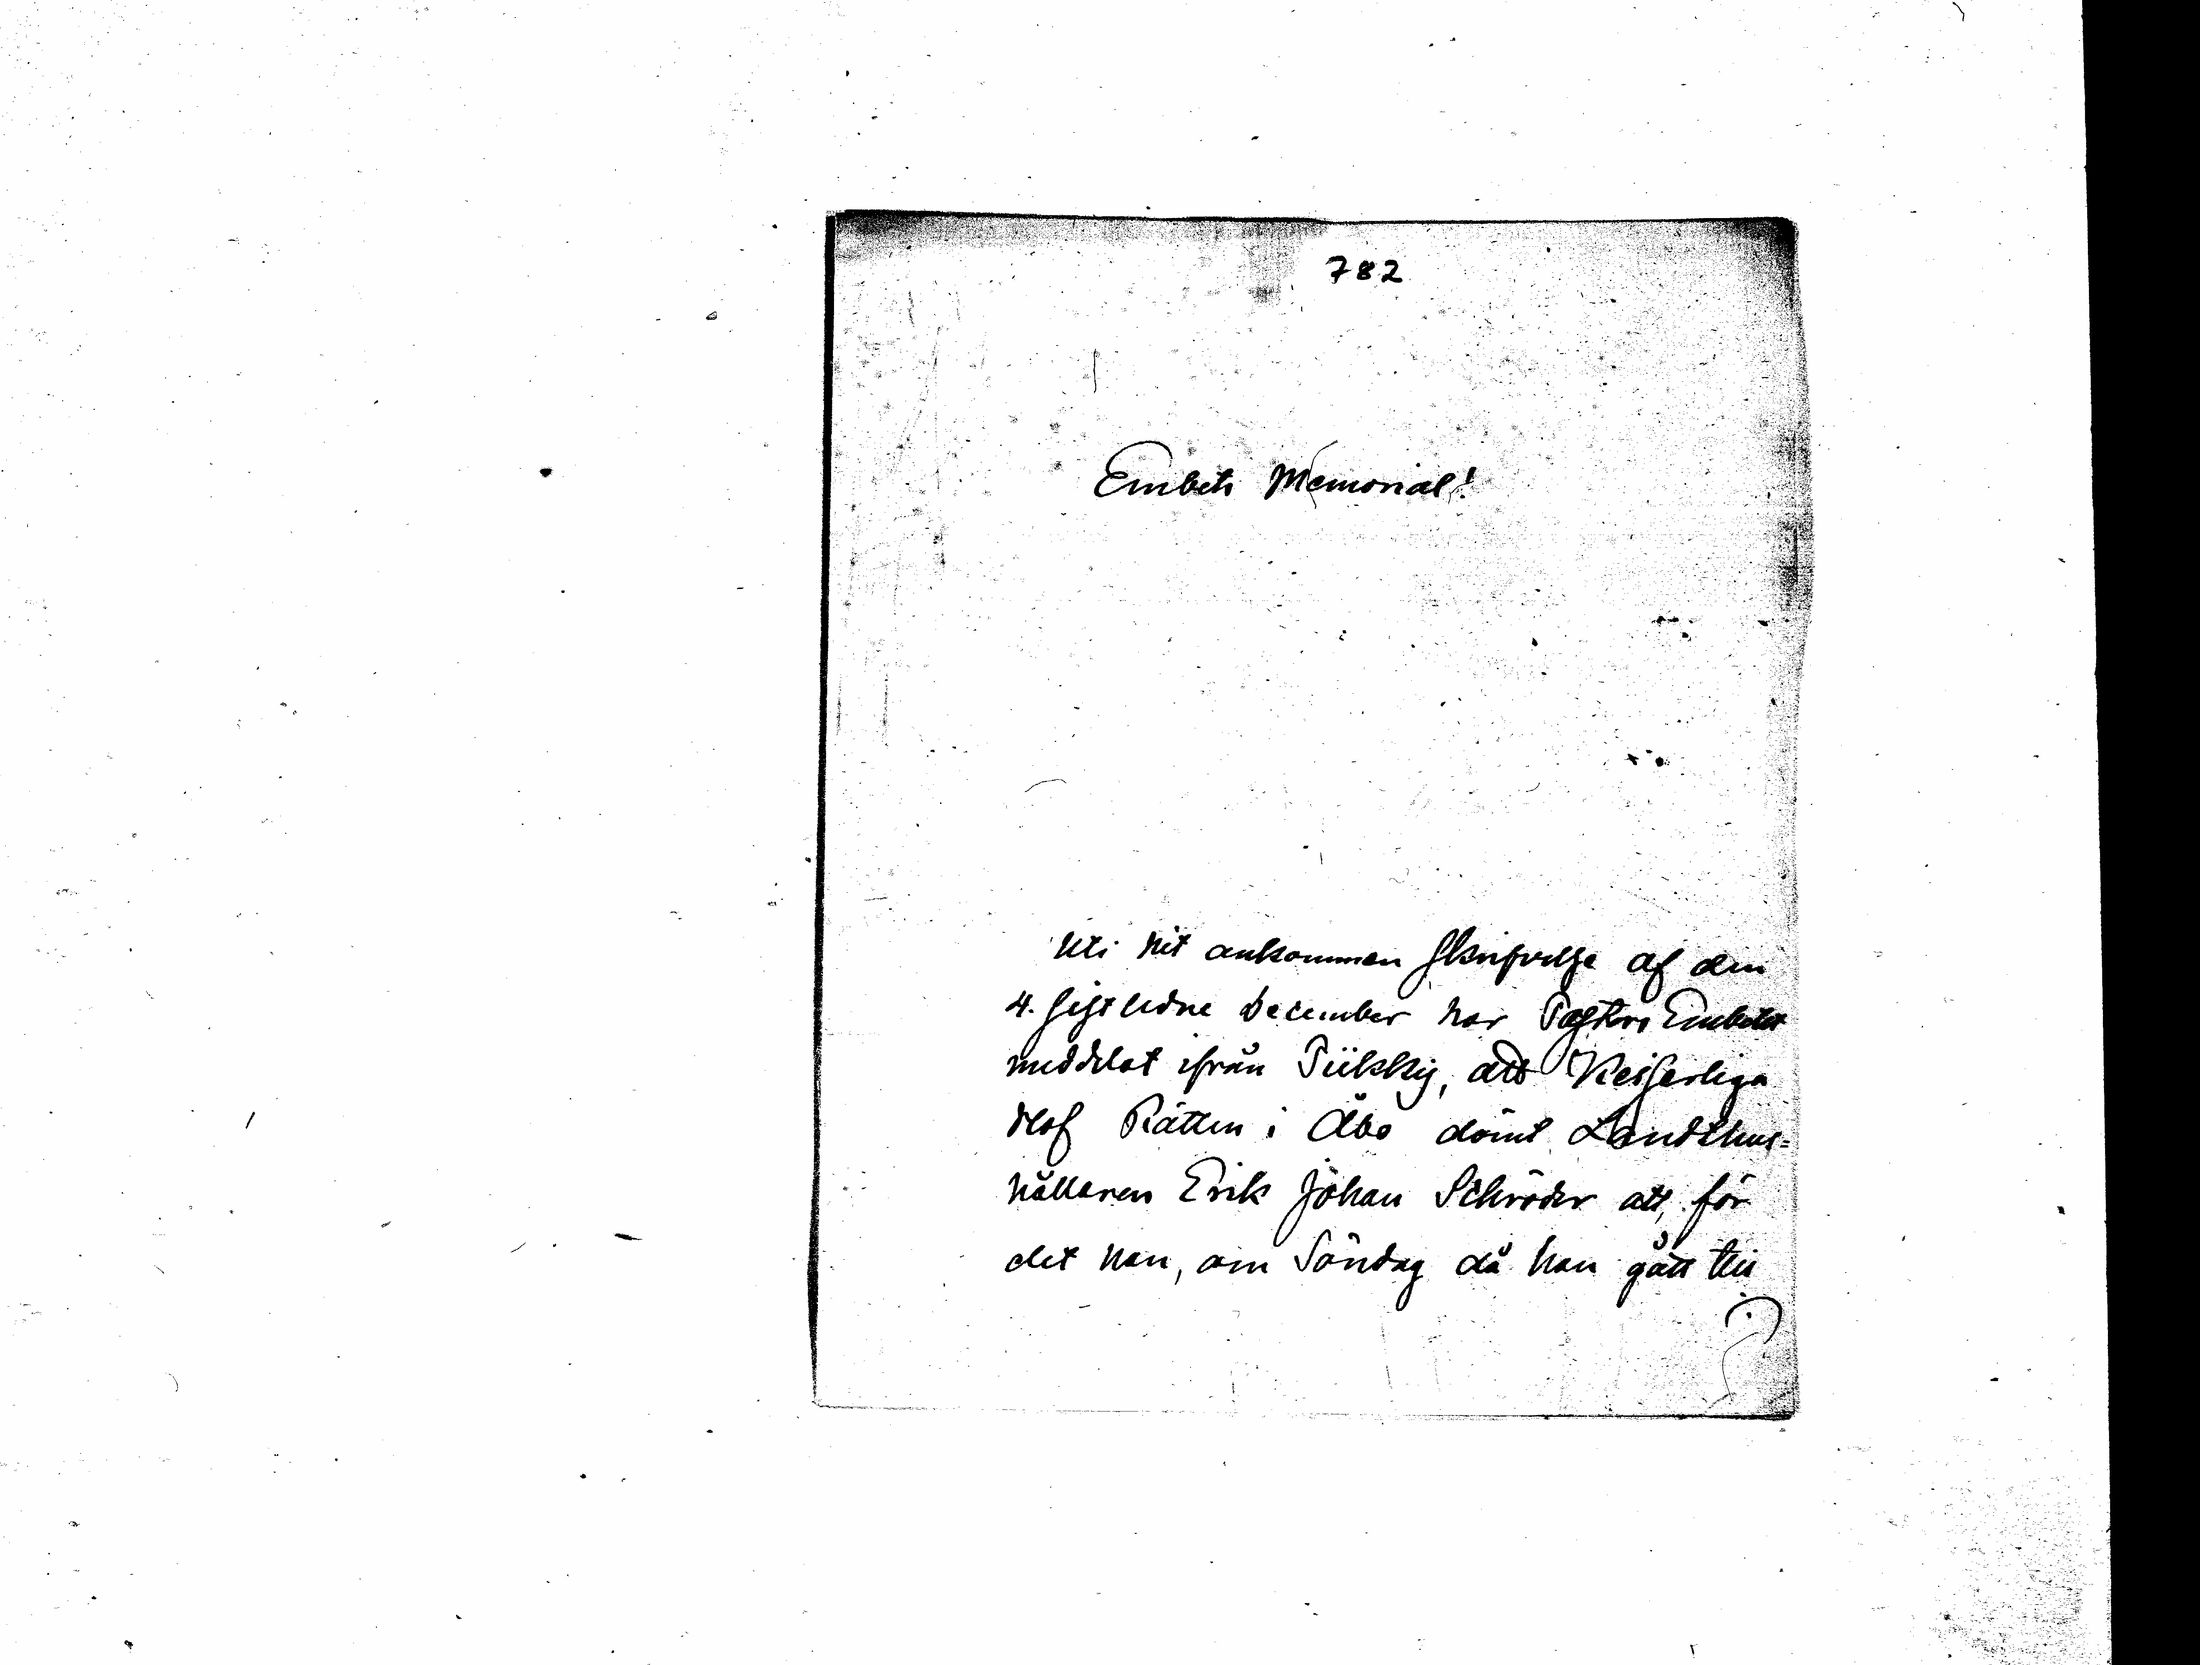 782
Embets Memorial!
Uti hit ankommen skrifvelse af den
4. sistledne December har Pastors Embetet
meddelat ifrån Piikkis, att Keiserliga
Hof Rätten i Åbo dömt Landthus=
hållaren Erik Johan Schröder att, för
det han, om Söndag då han gått till